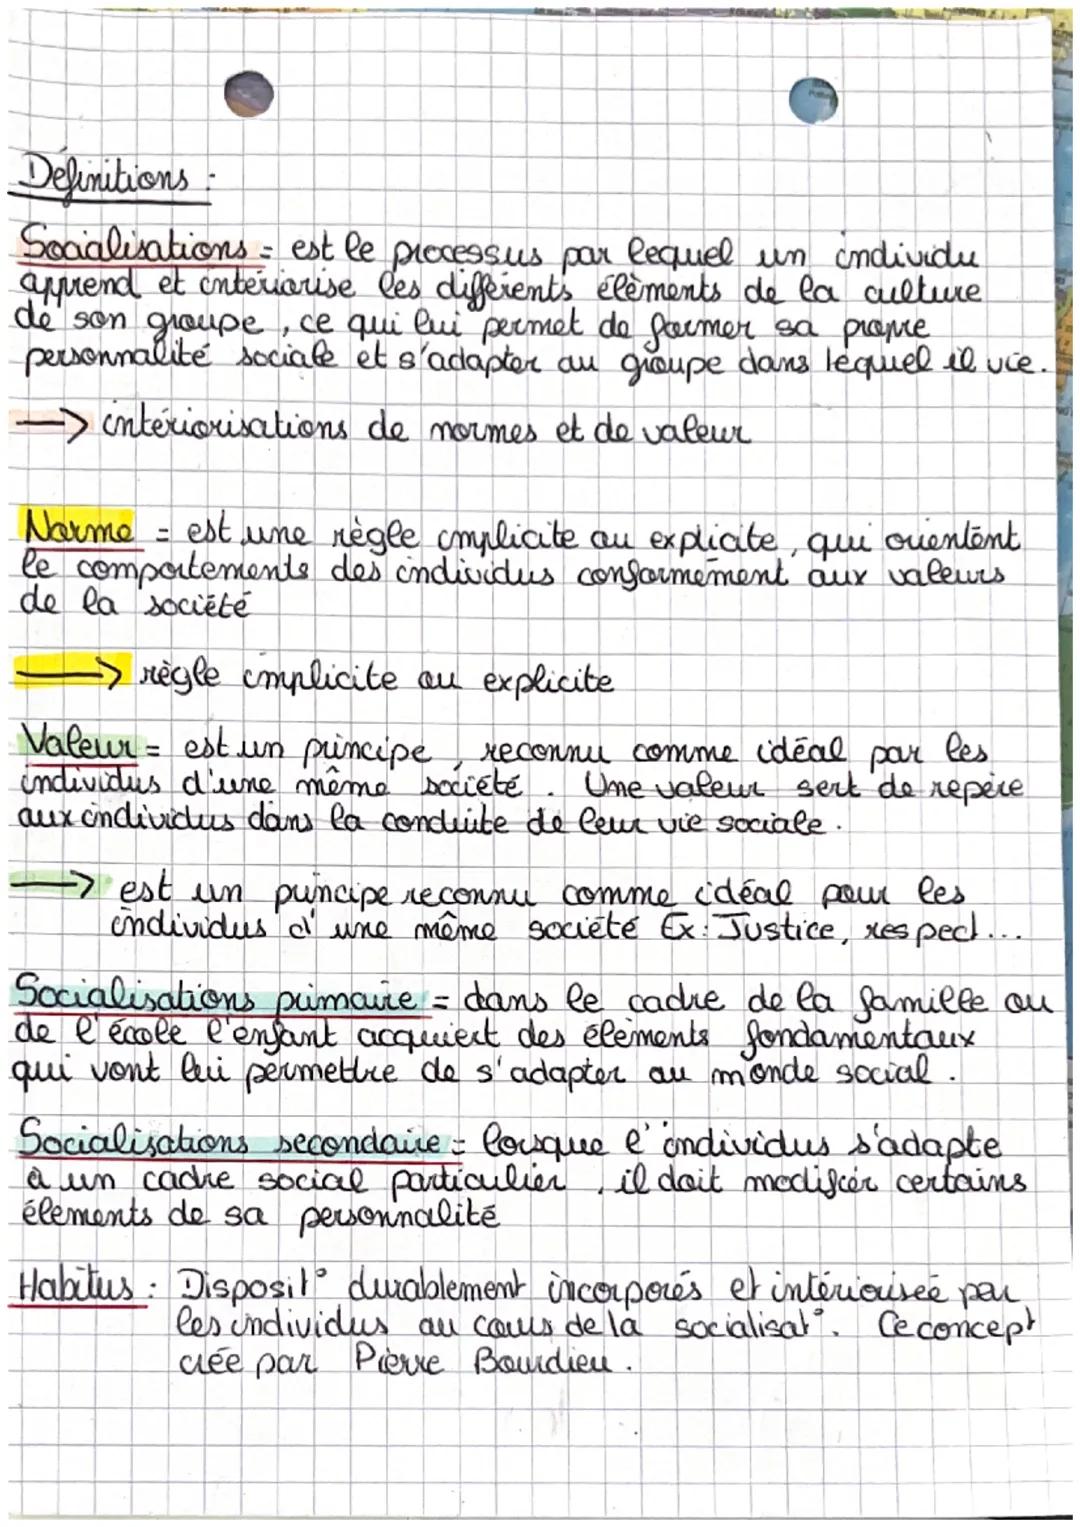 Définitions :
Socialisations = est le processus par lequel un individu
apprend et intériorise les différents élèments de la culture
de son groupe, ce qui lui permet de former sa propre
personnalité sociale et s'adapter au groupe dans lequel il vie.
→ intériorisations de normes et de valeur
Norme = est une règle implicite ou explicite, qui orientent
le comportements des individus conformément aux valeurs
de la société
→ règle implicite ou explicite
Valeur = est un principe, reconnu comme idéal par les
individus d'une même société. Une valeur sert de repère
aux individus dans la conduite de leur vie sociale.
→ est un principe reconnu comme idéal pour les
individus d'une même société Ex: Justice, respect...
Socialisations primaire = dans le cadre de la famille ou
de l'école l'enfant acquiert des éléments fondamentaux
qui vont lui permettre de s'adapter au monde social.
Socialisations secondaire = lorsque l'individus s'adapte
à un cadre social particulier, il doit modifier certains
élements de sa personnalité
Habitus : Disposit° durablement incorporés et intériorisée par
les individus au cours de la socialisat°. Ce concept
créé par Pierre Bourdieu.